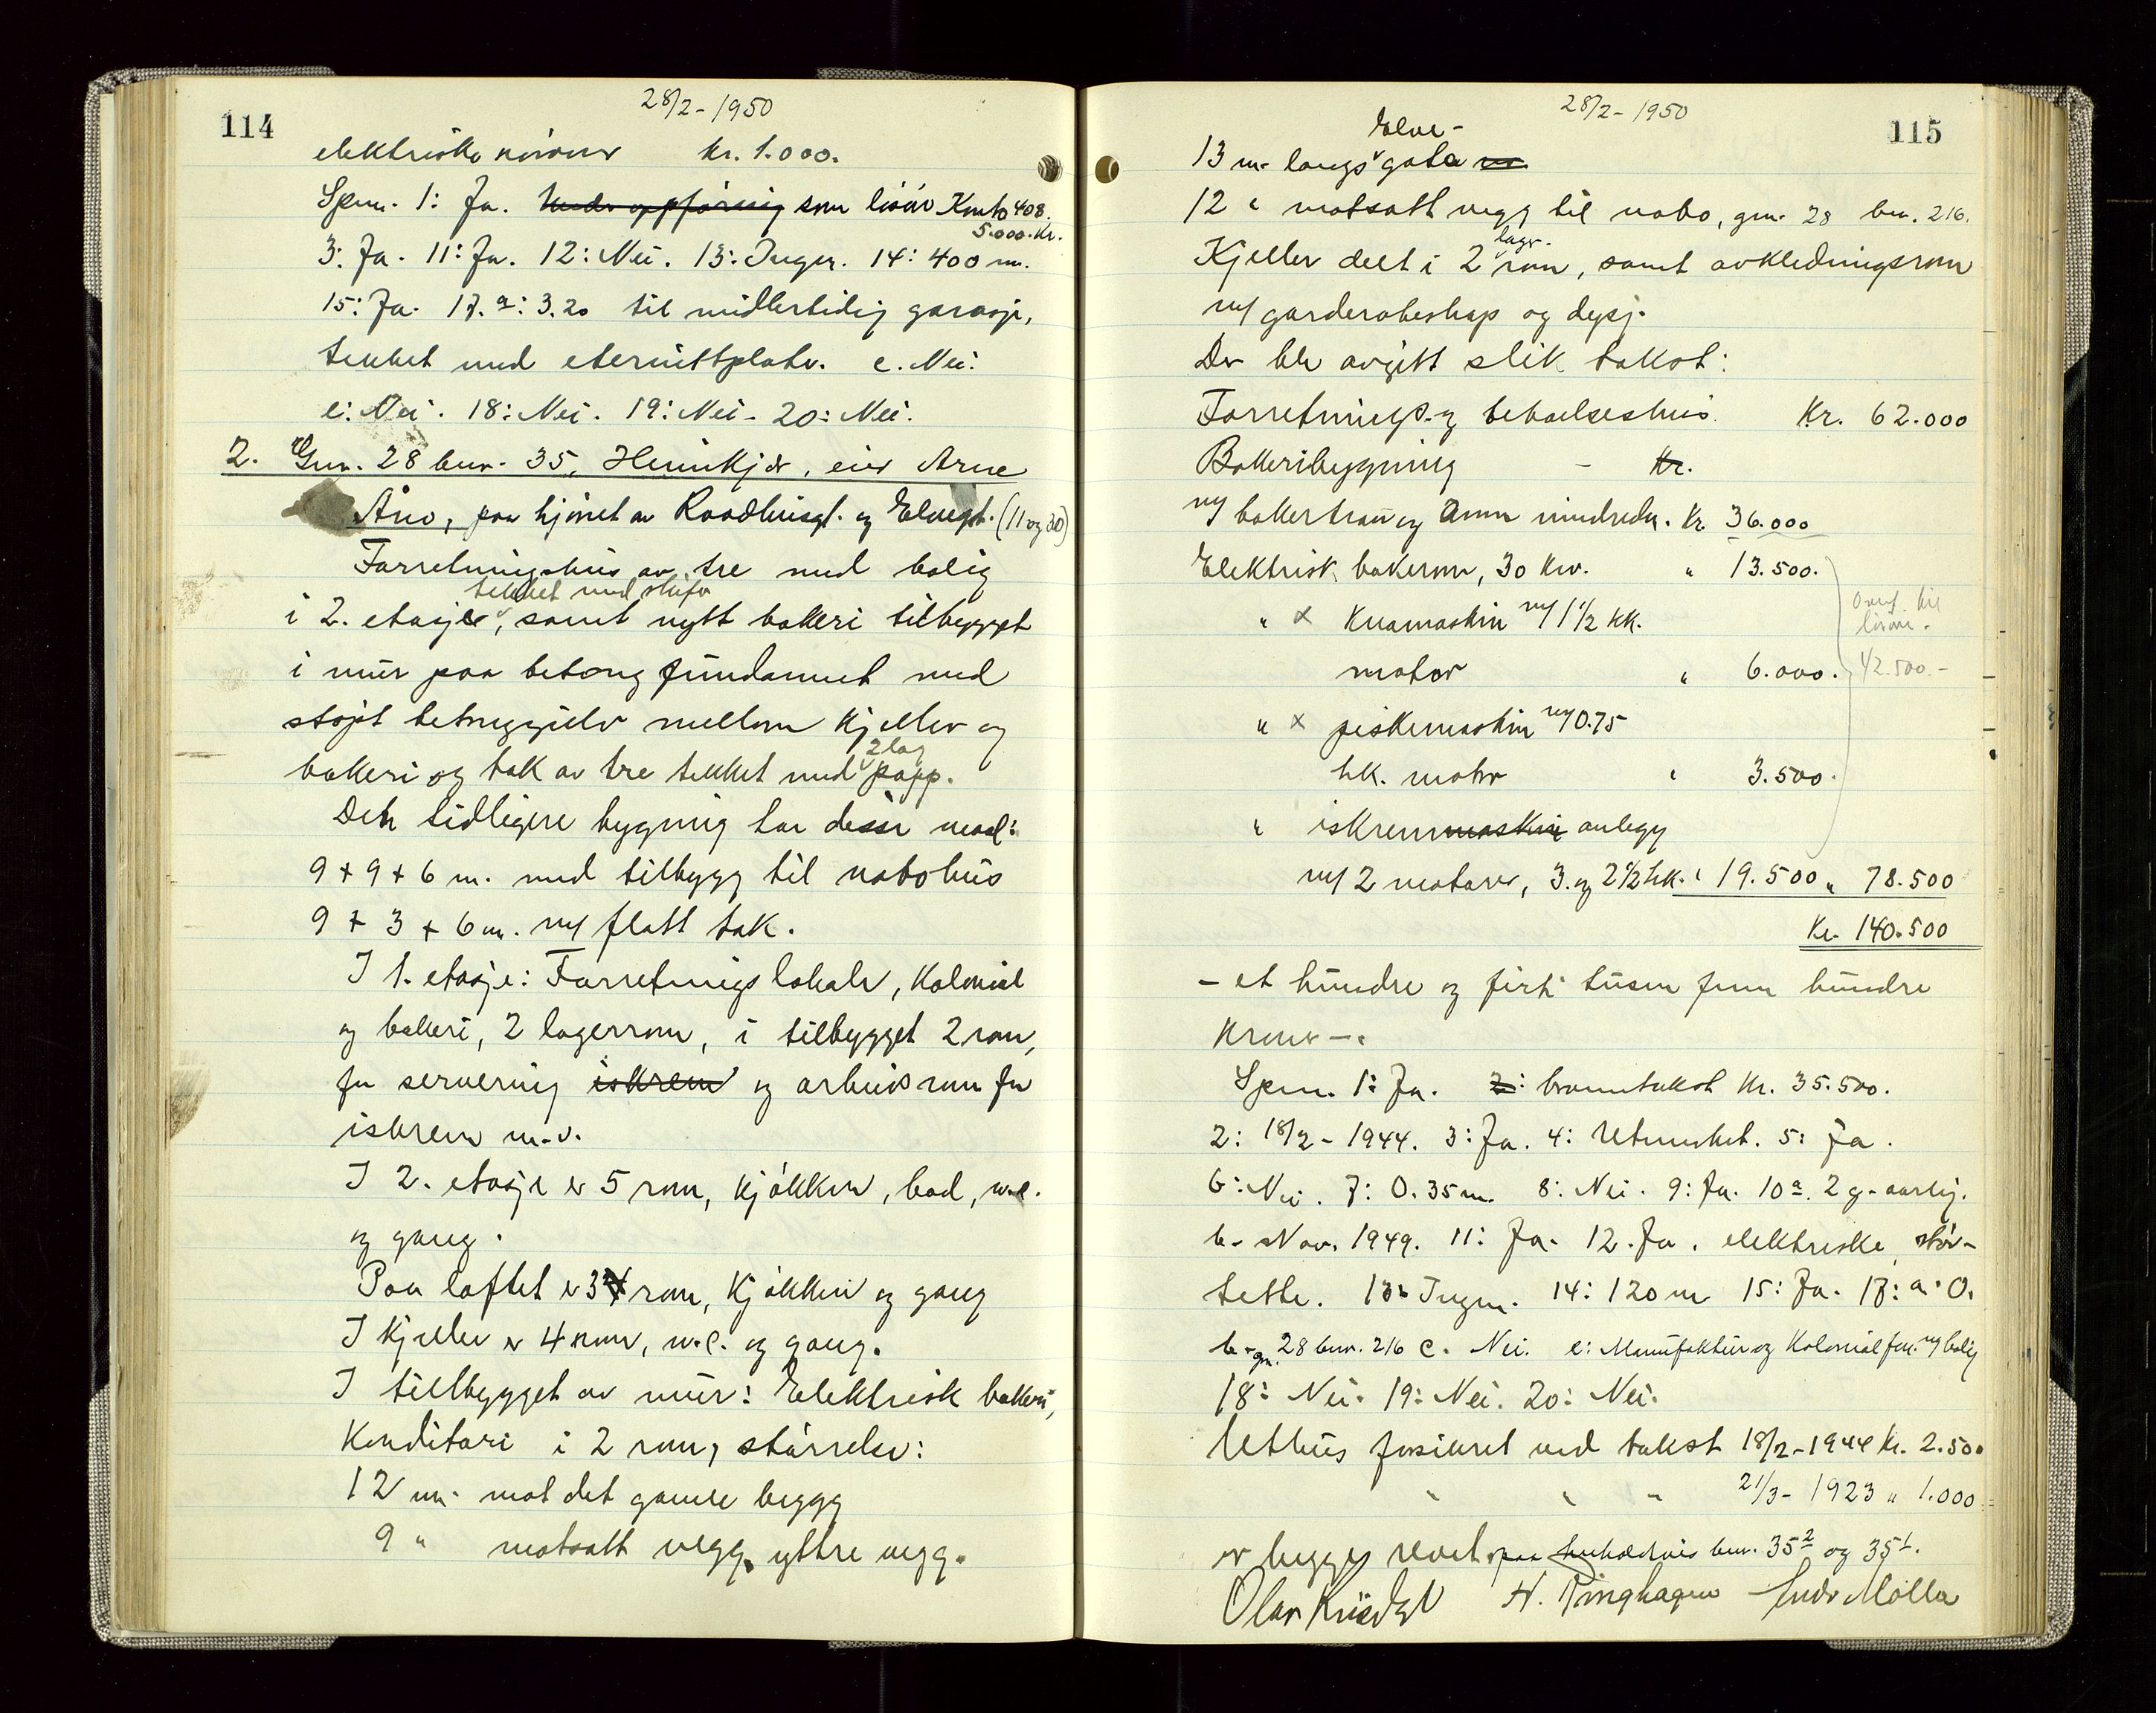 28/2 - 1950
114
elektriske Kr. 1.000.
Spm. 1: Ja. Under oppföring som lösöre Konto 408.
5.000 Kr.
3: Ja. 11: Ja. 12: Nei. 13: Ingen. 14: 400 m.
15: Ja. 17. a: 3.20 til midlertidig garasje,
tekket med eternittplater. c. Nei.
e: Nei. 18: Nei. 19: Nei. 20: Nei.
2. Gnr. 28 bnr. 35, eier Arne
paa hjörnet av Raadhusgt. og Elvegt. (11 og 30)
Forretningshus av tre med bolig
tekket med skifer
i 2. etasje, samt nytt bakeri tilbygget
i mur paa betong fundament med
støpt betonggulv mellem kjeller og
2 lag
bakeri og tak av tre tekket med papp.
Den tidligere bygning har disse maal:
9 + 9 + 6 m. med tilbygg til nabohus
9 + 3 + 6 m. m/ flatt tak.
I 1. etasje: Forretningslokale, Kolonial
og bakeri, 2 lagerrom, i tilbygget 2 rom,
for servering iskrem og arbeidsrom for
iskrem m.v.
I 2. etasje er 5 rom, kjökken, bad, w.c.
og gang.
Paa loftet er 3 rom, Kjökken og gang
I kjeller er 4 rom, w.c. og gang.
I tilbygget av mur: Elektrisk bakeri,
Konditori i 2 rom, störrelse:
12 m. mot det gamle bygg
9 " motsatt vegg. yttre vegg.
28/2 - 1950
115
Elve-
13 m. langs gata
12 " motsatt vegg til nabo, gnr. 28 bnr. 216.
lager-
Kjeller delt i 2 rom, samt avkledningsrom
m/ garderobeskap og dusj.
Der ble avgitt slik takst:
Forretnings- og beboelseshus Kr. 62.000
Bakeribygning - Kr.
m/ bakertrau og annen innredn. Kr. 36.000
Elektrisk bakerovn, 30 Kw. " 13.500.
" x Knamaskin m/ 1 1/2 HK.
motor " 6.000.
" x piskemaskin m/ 0.75
hk. motor " 3.500.
Overf. til
lösöre.
42.500 -
" iskremmaskin anlegg
m/ 2 motorer, 3. og 2 1/2 hk. " 19.500 " 78.500
Kr. 140.500
- et hundre og firti tusen fem hundre
Kroner -.
Spm. 1: Ja. 2: branntakst Kr. 35.500.
2: 18/2 - 1944. 3: Ja. 4: Utmerket. 5: Ja.
6: Nei. 7: 0.35 m. 8: Nei. 9: Ja. 10 a. 2 g. aarlig.
b. Nov. 1949. 11: Ja. 12. Ja. elektriske, stöv-
tette. 13: Ingen. 14: 120 m 15: Ja. 17: a. 0.
b - gnr. 28 bnr. 216 c. Nei. e: Manufaktur og Kolonialforr. m/ bolig
18: Nei. 19: Nei. 20: Nei.
Uthus forsikret ved takst 18/2 - 1944 Kr. 2.500
" " " 21/3 - 1923 " 1.000
er begge revet. paa henholdsvis bnr. 35² og 35¹.
H. Ringhagen